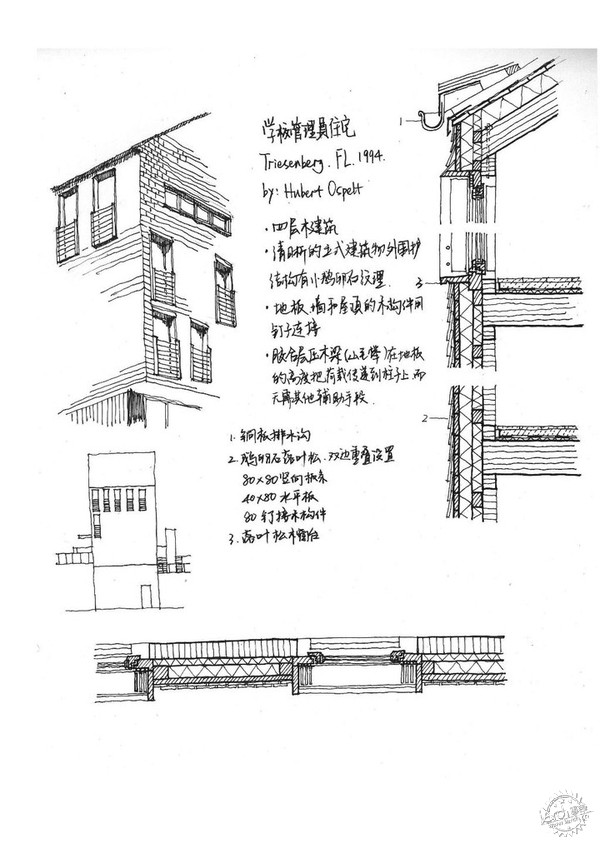 学校管理員住宅
Triesenberg. FL. 1994.
by: Hubert Ospelt
· 四层木建筑
· 清晰的立式建筑物外围护
结构有小鹅卵石纹理.
· 地板、墙和屋顶的木构件用
钉子连接
· 胶合层压木梁(山毛榉)在地板
的高度把荷载传递到柱子上而
无需其他辅助手段.
1. 铜板排水沟
2. 鹅卵石落叶松. 双边重叠设置
80×80竖向板条
40×80 水平板
80 钉接木构件
3. 落叶松木窗台
1
3
2